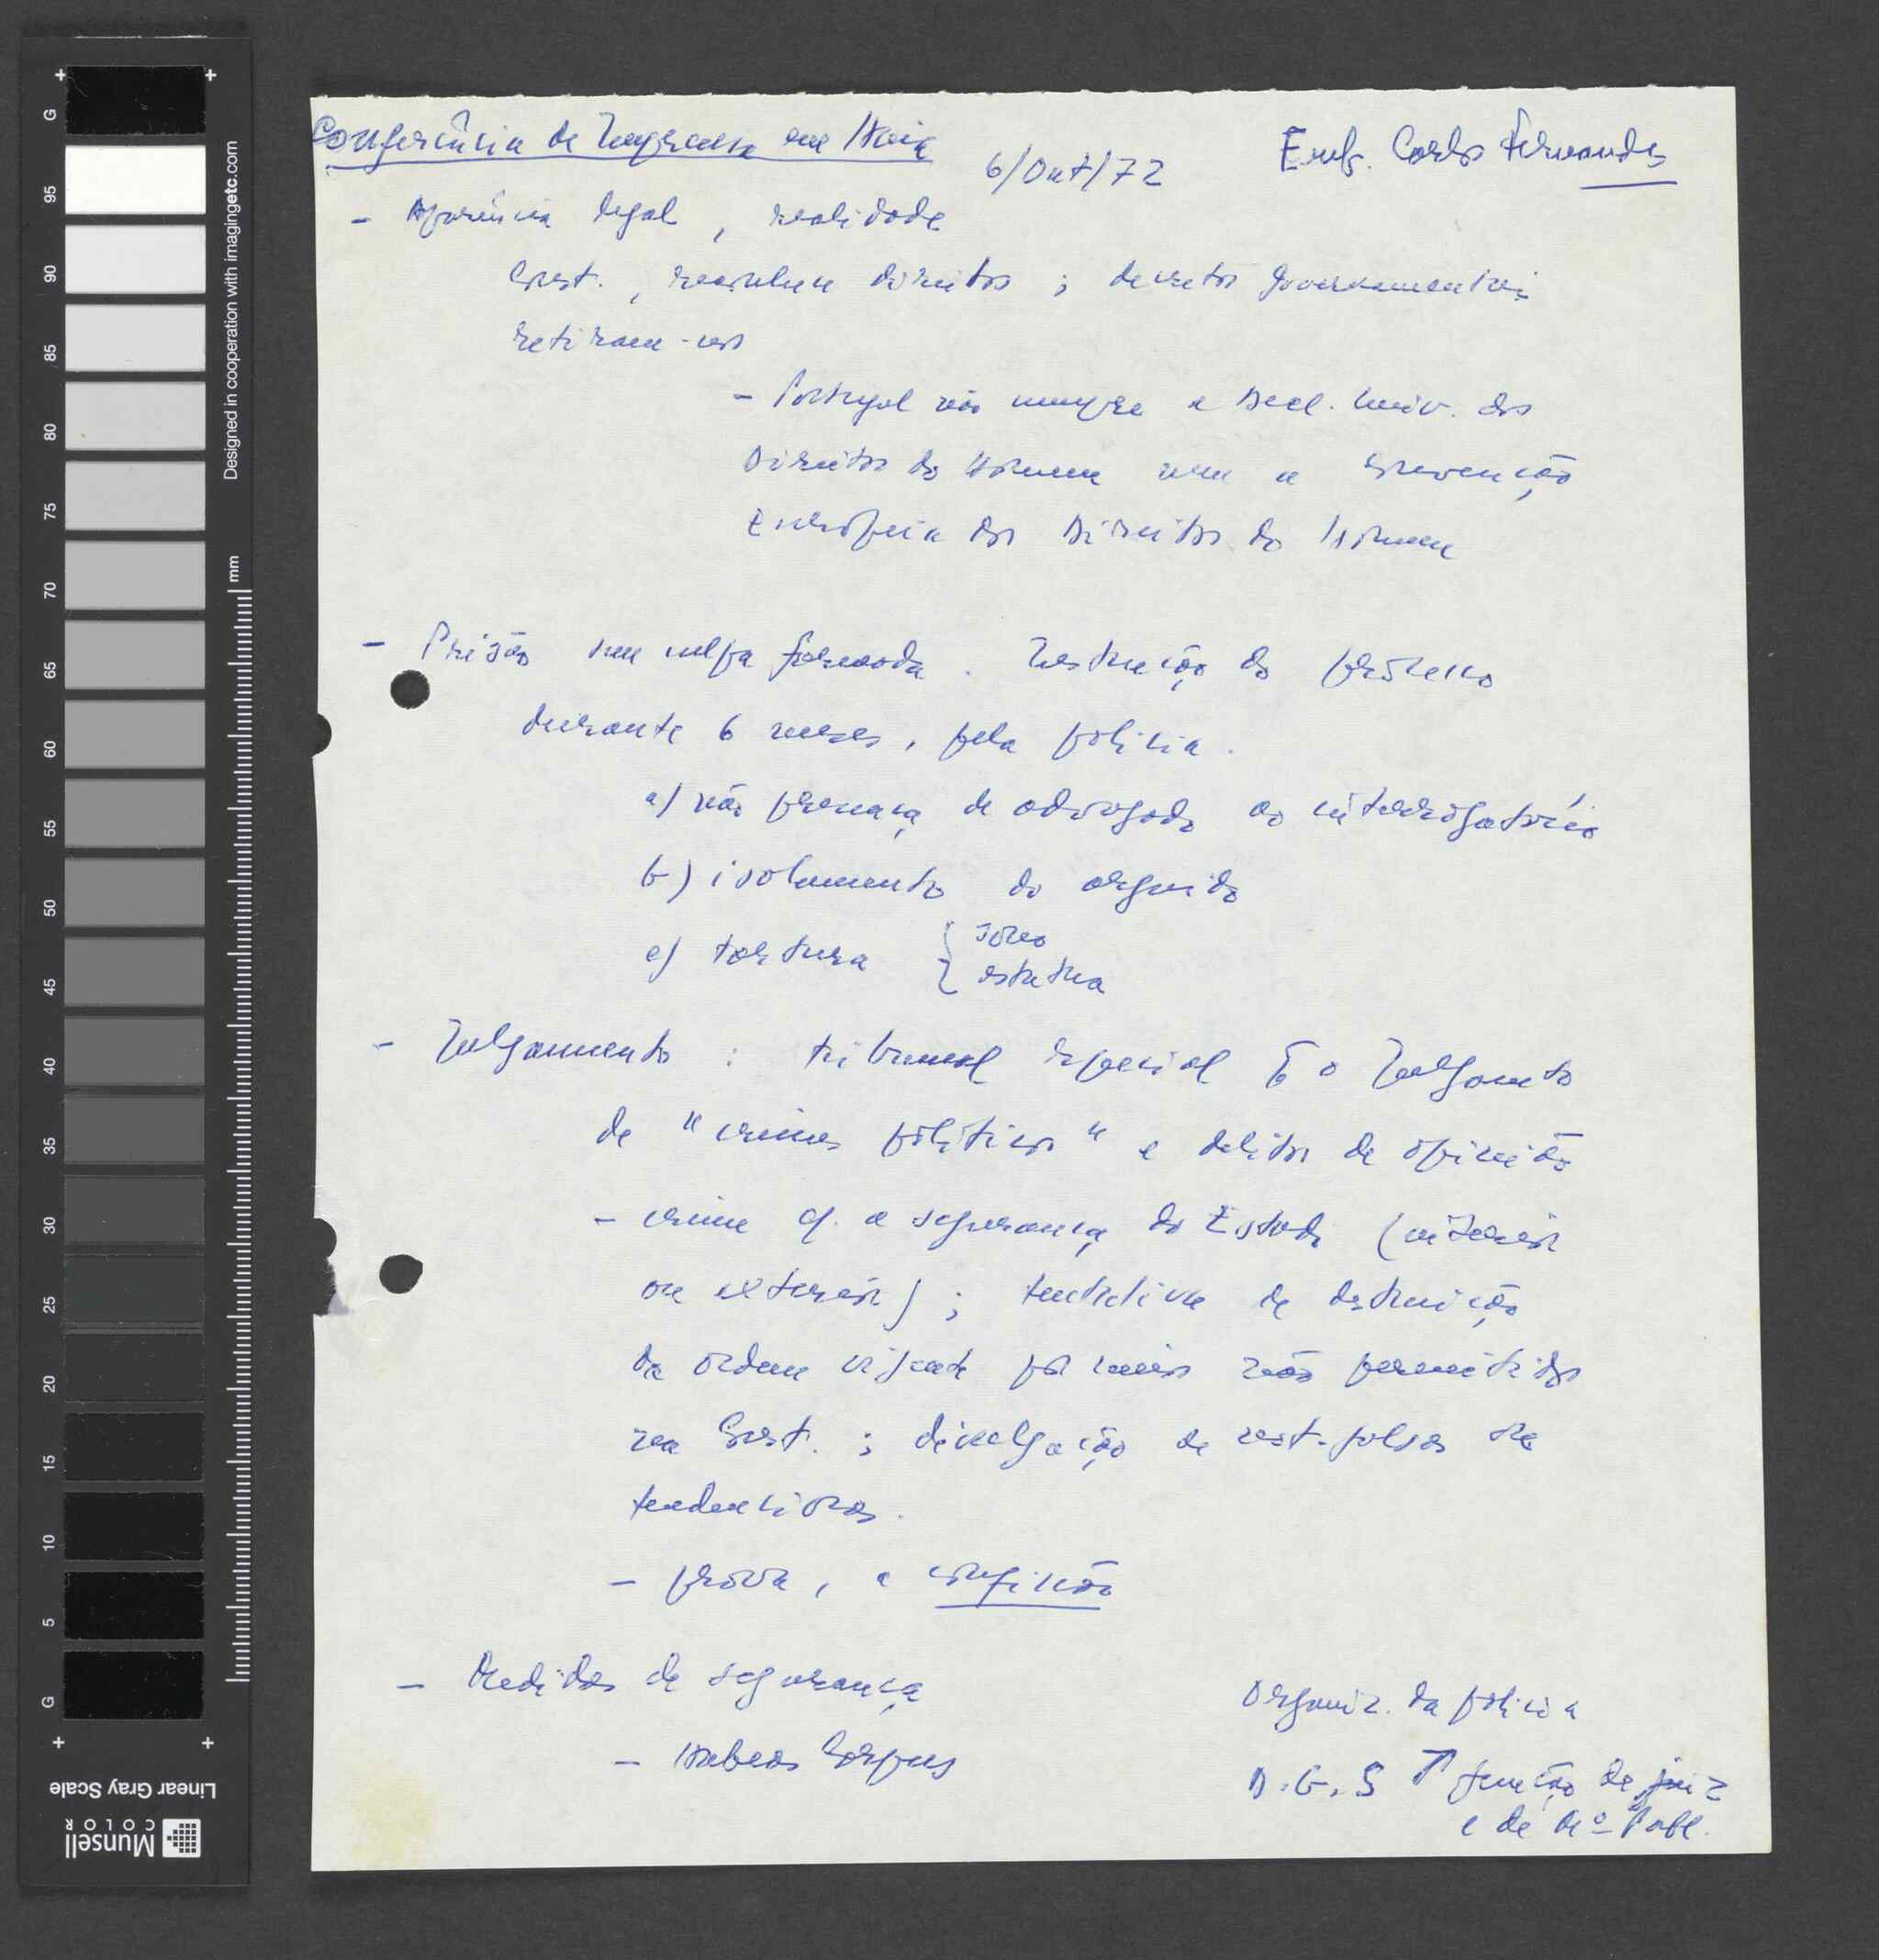 Conferência de Imprensa em Haia
6/Out/72
Enf. Carlos Fernandes
- Aparência legal, realidade
Const., reconhece direitos; decretos governamentais
retiram-nos
- Portugal não cumpre a Decl. Univ. dos
Direitos do Homem nem a Convenção
Europeia dos Direitos do Homem
- Prisão sem culpa formada. Instrução do processo
durante 6 meses, pela polícia.
a) não presença de advogado ao interrogatório
b) isolamento do arguido
c) tortura { sono
estátua
- Julgamento: tribunal especial o Julgamento
de "crimes políticos" e delitos de opinião
- crime c. a segurança do Estado (interior
ou exterior); tentativa de destruição
da ordem vigente por meios não permitidos
na Const.; divulgação de not. falsas ou
tendenciosas.
- prova, a confissão
- Medidas de segurança
- Habeas Corpus
Organiz. da polícia
D.G.S ↗ função de juiz
e de Mº Públ.
G
95
90
85
80
75
70
65
60
55
50
45
40
35
30
25
20
15
10
5
G
mm
Designed in cooperation with imagingetc.com
Linear Gray Scale
Munsell
COLOR